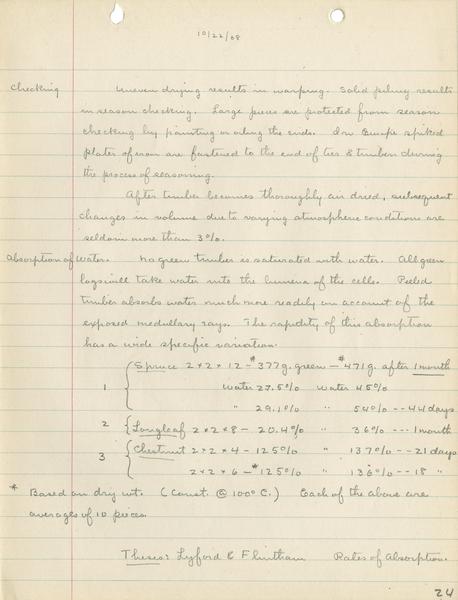 10/22/08
Checking Uneven drying results in warping. Solid piling results
in season checking. Large pieces are protected from season
checking by painting or oiling the ends. In Europe spiked
plates of iron are fastened to the end of ties & timbers during
the process of seasoning.
After timber becomes thoroughly air dried, subsequent
changes in volume due to varying atmospheric conditions are
seldom more than 3%.
Absorption of Water. No green timber is saturated with water. All green
logs will take water into the lumena of the cells. Peeled
timber absorbs water much more readily on account of the
exposed medullary rays. The rapidity of this absorption
has a wide specific variation.
1 { Spruce 2 x 2 x 12 - *377g. green - *471g. after 1 month
water 27.5% water 45%
" 29.1% " 54% --- 44 days
2 { Longleaf 2 x 2 x 8 - 20.4% " 36% --- 1 month
3 { Chestnut 2 x 2 x 4 - 125% " 137% --- 21 days
2 x 2 x 6 - *125% " 136% --- 18 "
* Based on dry wt. (Const. @ 100° C.) Each of the above are
averages of 10 pieces.
Thesis: Lyford & Flintham Rates of Absorption.
24